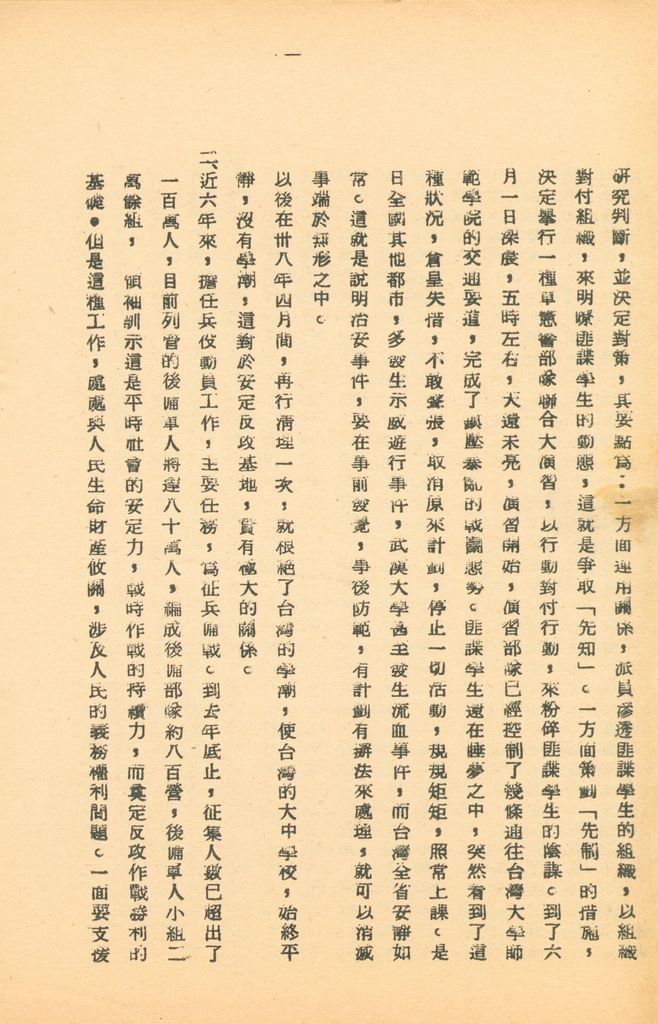 一
研究判斷，並決定對策，其要點爲：一方面運用關係，派員滲透匪諜學生的組織，以組織
對付組織，來明暸匪諜學生的動態，這就是爭取「先知」。一方面策劃「先制」的措施，
決定舉行一種軍憲警部隊聯合大演習，以行動對付行動，來粉碎匪諜學生的陰謀。到了六
月一日深晨，五時左右，天還未亮，演習開始，演習部隊已經控制了幾條通往台灣大學師
範學院的交通要道，完成了鎮壓暴亂的戰鬭態勢。匪諜學生還在睡夢之中，突然看到了這
種狀況，倉皇失措，不敢聲張，取消原來計劃，停止一切活動，規規矩矩，照常上課。是
日全國其他都市，多發生示威遊行事件，武漢大學甚至發生流血事件，而台灣全省安靜如
常。這就是說明治安事件，要在事前發覺，事後防範，有計劃有辦法來處理，就可以消滅
事端於無形之中。
以後在卅八年四月間，再行清理一次，就根絕了台灣的學潮，使台灣的大中學校，始終平
靜，沒有學潮，這對於安定反攻基地，實有極大的關係。
二、近六年來，擔任兵役動員工作，主要任務，爲征兵備戰。到去年底止，征集人數已超出了
一百萬人，目前列管的後備軍人將達八十萬人，編成後備部隊約八百營，後備軍人小組二
萬餘組，　領袖訓示這是平時社會的安定力，戰時作戰的持續力，而奠定反攻作戰勝利的
基礎。但是這種工作，處處與人民生命財產攸關，涉及人民的義務權利問題。一面要支援